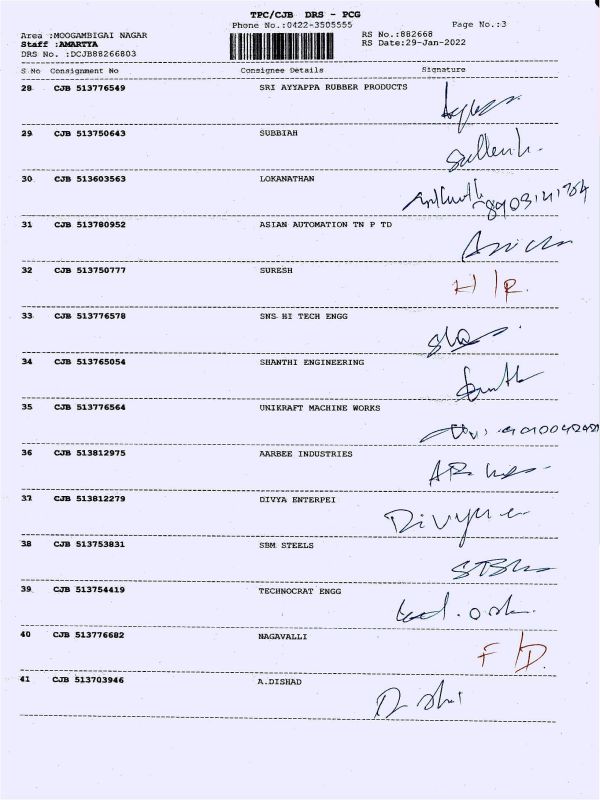 TPC/CJB DRS - PCG
Phone No.:0422-3505555
Page No.:3
Area :MOOGAMBIGAI NAGAR
RS No.:882668
Staff :AMARTYA
RS Date:29-Jan-2022
DRS No. :DCJB88266803
S No Consignment No Consignee Details Signature
28 CJB 513776549 SRI AYYAPPA RUBBER PRODUCTS
29 CJB 513750643 SUBBIAH
30 CJB 513603563 LOKANATHAN
31 CJB 513780952 ASIAN AUTOMATION TN P TD
32 CJB 513750777 SURESH H/R.
33 CJB 513776578 SNS HI TECH ENGG
34 CJB 513765054 SHANTHI ENGINEERING
35 CJB 513776564 UNIKRAFT MACHINE WORKS
36 CJB 513812975 AARBEE INDUSTRIES
37 CJB 513812279 DIVYA ENTERPEI
38 CJB 513753831 SBM STEELS
39 CJB 513754419 TECHNOCRAT ENGG
40 CJB 513776682 NAGAVALLI F/D.
41 CJB 513703946 A.DISHAD